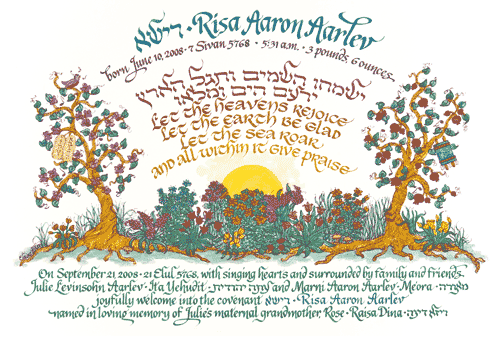 רישא · Risa Aaron Aarlev
born June 10, 2008 · 7 Sivan 5768 · 5:31 a.m. · 3 pounds, 6 ounces
ישמחו השמים ותגל הארץ
ירעם הים ומלאו
Let the heavens rejoice
Let the earth be glad
Let the sea roar
and all within it give praise
On September 21, 2008 · 21 Elul 5768, with singing hearts and surrounded by family and friends,
Julie Levinsohn Aarlev · Ita Yehudit · and Marni Aaron Aarlev · Me'ora · מאורה
joyfully welcome into the covenant רישא · Risa Aaron Aarlev
named in loving memory of Julie's maternal grandmother, Rose · Raisa Dina